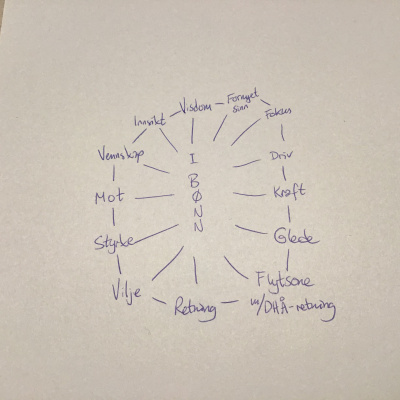 Visdom
Fornyet
Sinn
Fokus
Driv
Kraft
Glede
Flytsone
m/DHÅ-retning
Retning
Vilje
Styrke
Mot
Vennskap
Innsikt
I
B
Ø
N
N